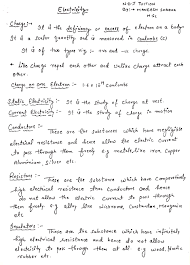 Electricity
Charge:- It is the deficiency or excess of electron on a body.
It is a scalar quantity and is measured in Coulomb (C)
It is of two type viz:- +ve and -ve charge
Like charge repel each other and unlike charge attract each other.
Charge on one Electron :
Static Electricity:- It is the study of charge at rest.
Current Electricity:- It is the study of charge in motion
Conductors :- There are the substance which have negligible electrical resistance and hence allow the electric current to pass through them freely eg metals, like iron, copper Aluminium, Silver etc
Resistors :- There are the substance which have comparatively high electrical resistance than Conductors and hence do not allow the electric Current to pass through them freely eg alloy like nichrome, Constantan, manganin etc
Insulators :- There are the substances which have infinitely high electrical resistance and hence do not allow electricity to pass through them at all eg wood, plastic rubber etc.